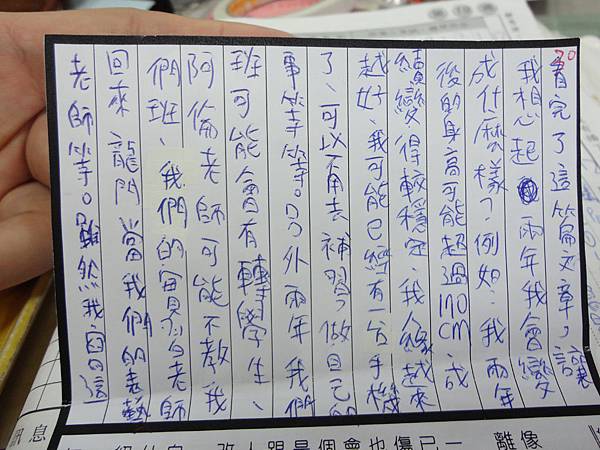 20
看完了這篇文章,讓
我想起兩年我會變
成什麼樣?例如:我兩年
後的身高可能超過170cm 成
績變得較穩定、我人緣越來
越好、我可能已經有一台手機
了、可以不用去補習,做自己的
事等等。另外兩年我們
班可能會有轉學生、
阿倫老師可能不教我
們班、我們的實習老師
回來龍門當我們的表藝
老師等。雖然我寫這
訊息
改人跟是個會也傷已一 離像